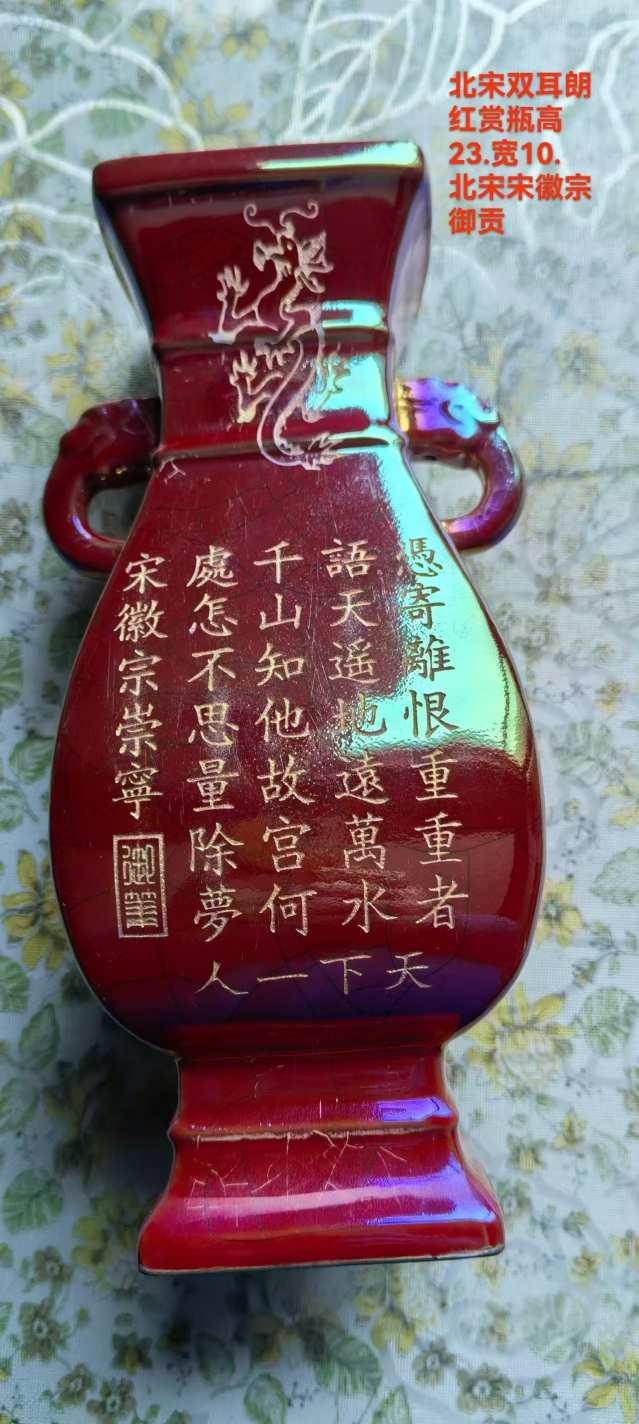 北宋双耳朗
红赏瓶高
23.宽10.
北宋宋徽宗
御贡
憑寄離恨重重者
語天遥地遠萬水
千山知他故宫何
處怎不思量除夢
宋徽宗崇寧
御筆
天下一人